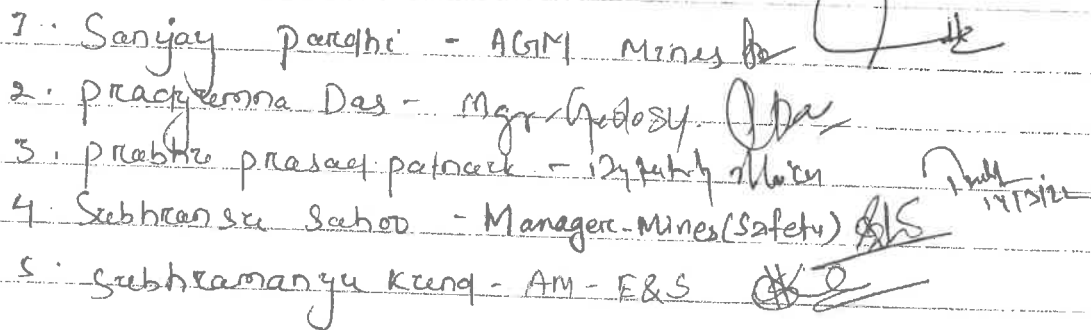 1. Sanjay Paradhi - AGM Mines
2. Pradyumna Das - Mgr-Geology.
3. Prabhu prasad patnaik - Dy
4. Subhransu Sahoo - Manager-Mines (Safety)
5. Subhramanyu Kund - AM - E&S